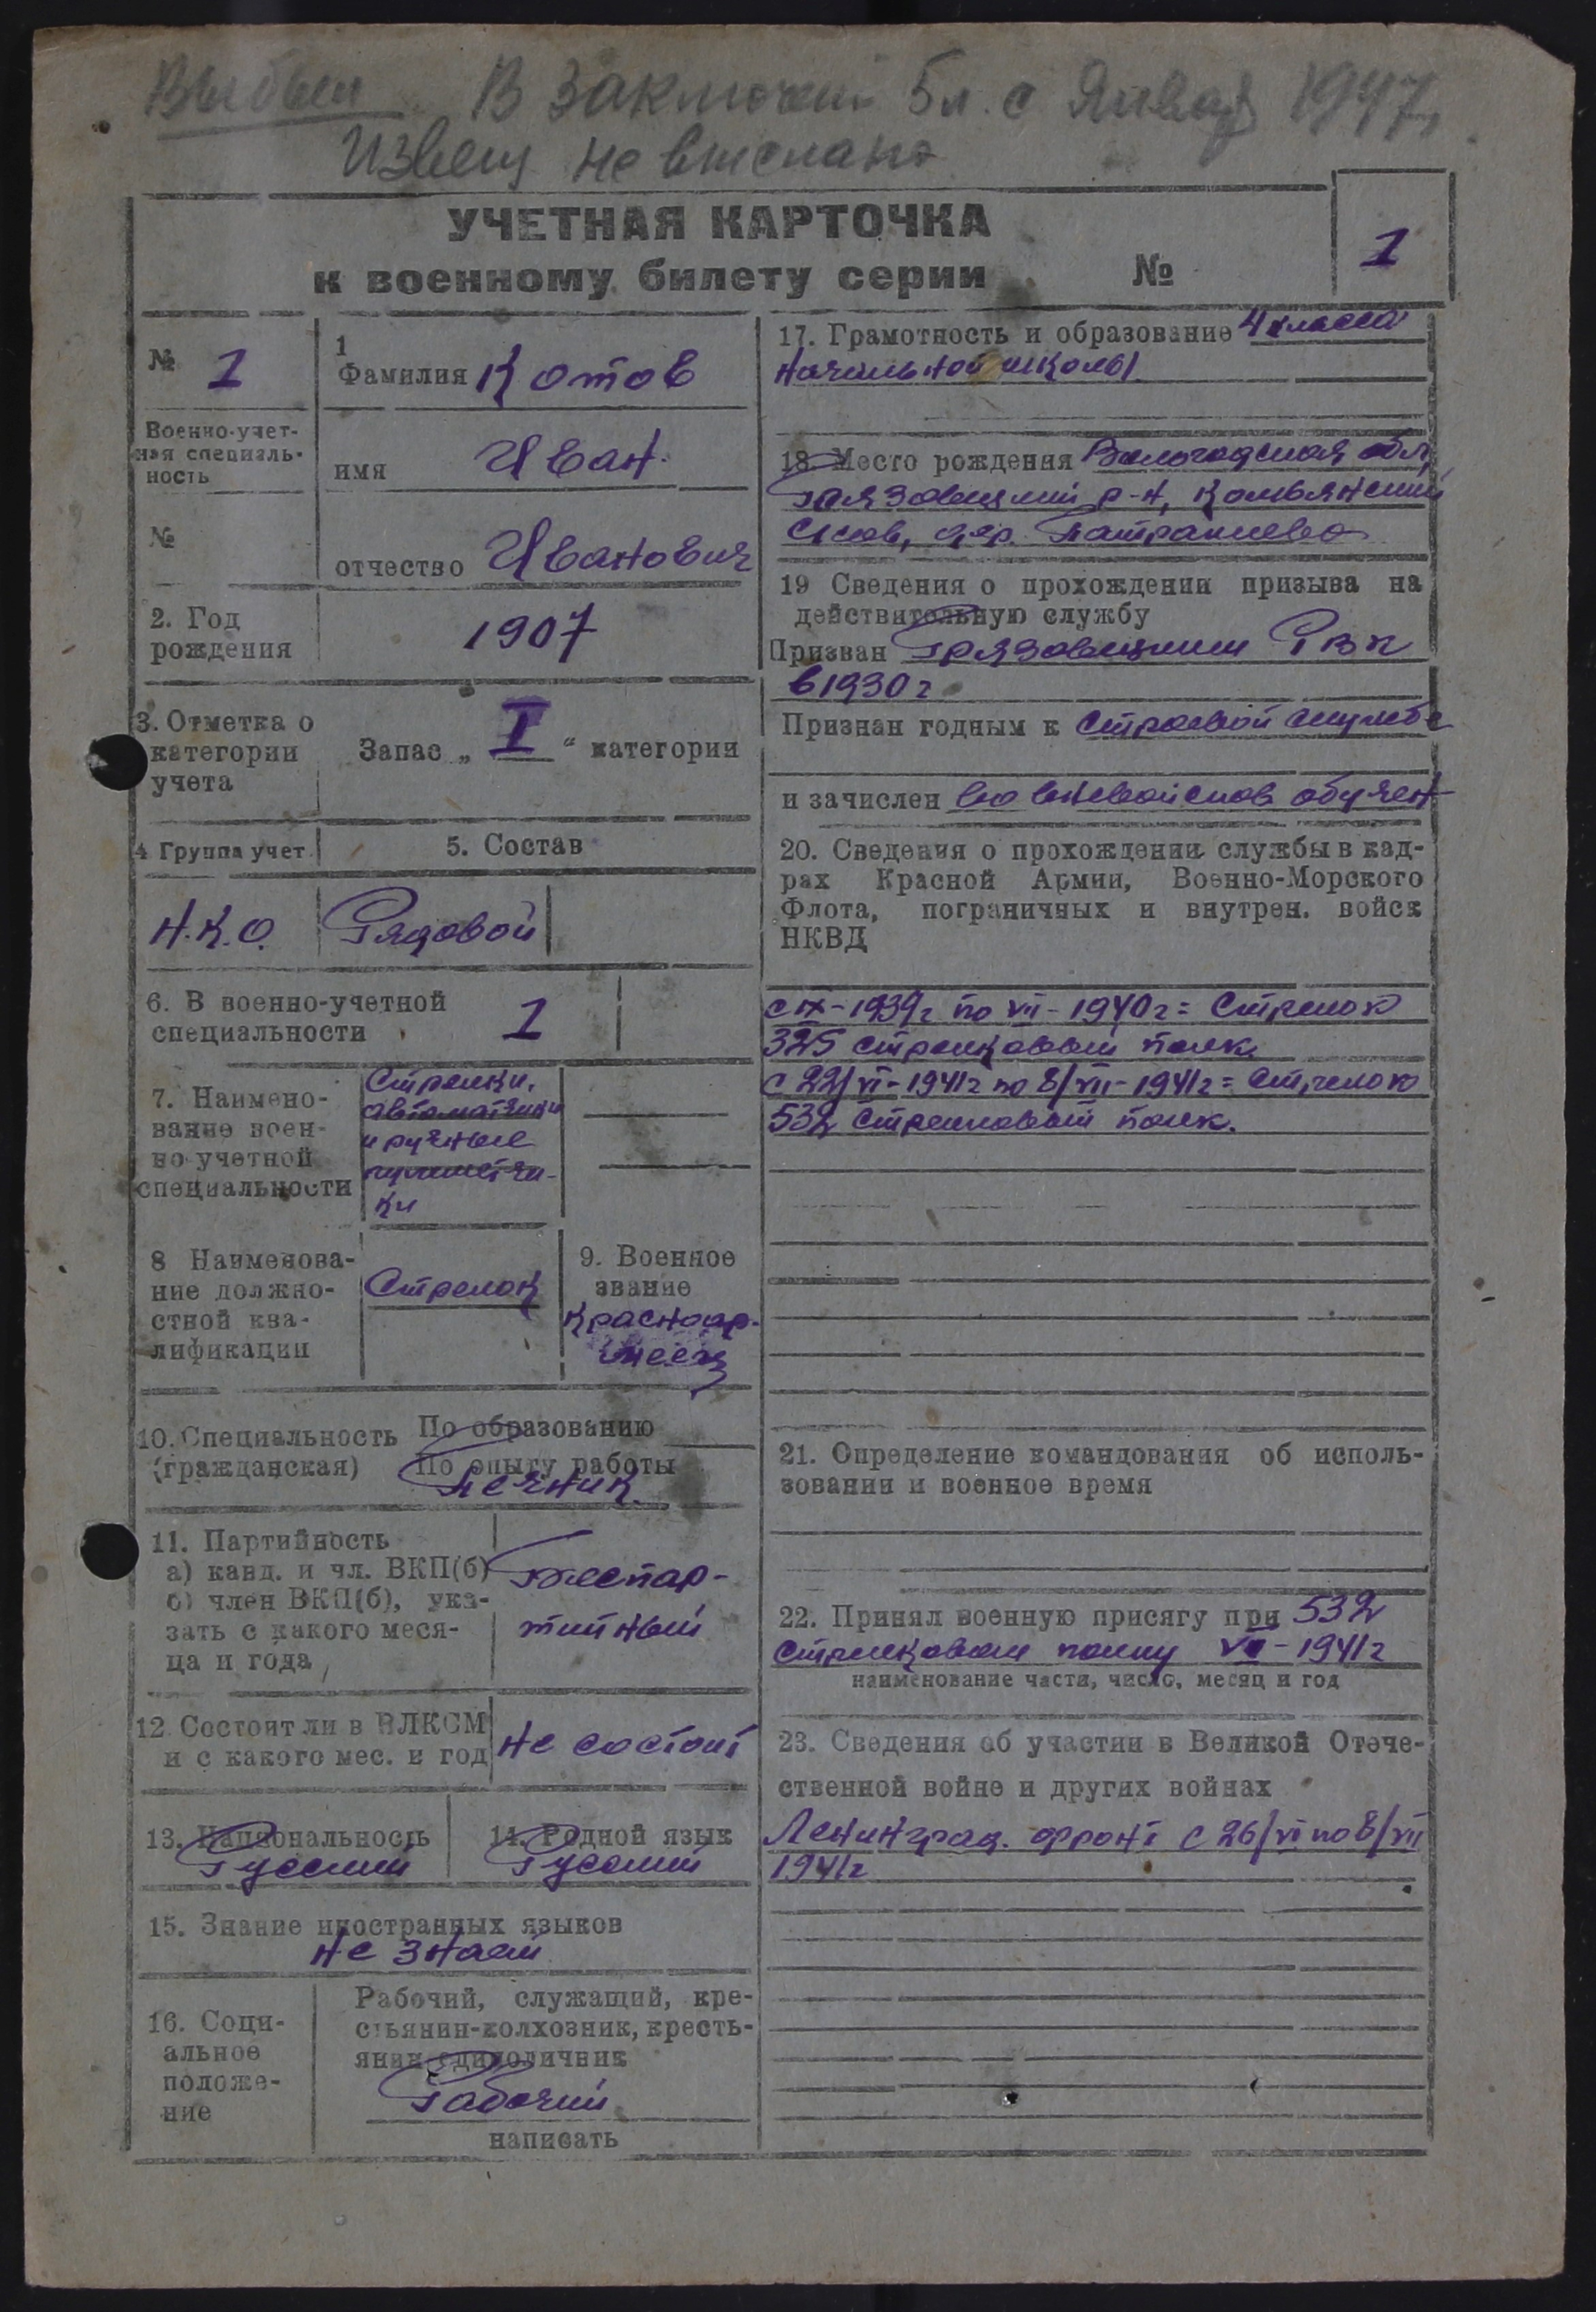 Выбыл В заключен 5л. с Января 1947г.
Извещ не выслано
УЧЕТНАЯ КАРТОЧКА
к военному билету серии №
1
№ 1
1
Фамилия Котов
Военно-учет-
ная специаль-
ность
имя Иван
№
отчество Иванович
2. Год
рождения
1907
3. Отметка о
категории
учета
Запас „ I “ категории
4 Группа учет.
5. Состав
Н.К.О. Рядовой
6. В военно-учетной
специальности 1
7. Наимено-
вание воен-
но-учетной
специальности
Стрелки,
автоматчики
и ручные
пулеметчи-
ки
8 Наименова-
ние должно-
стной ква-
лификации
Стрелок
9. Военное
звание
Красноар-
меец
10. Специальность
(гражданская)
По образованию
По опыту работы
Печник
11. Партийность
а) канд. и чл. ВКП(б)
б) член ВКП(б), ука-
зать с какого меся-
ца и года
Беспар-
тийный
12 Состоит ли в ВЛКСМ
и с какого мес. и год
Не состоит
13. Национальность
Русский
14. Родной язык
Русский
15. Знание иностранных языков
Не знает
16. Соци-
альное
положе-
ние
Рабочий, служащий, кре-
стьянин-колхозник, кресть-
янин-единоличник
Рабочий
написать
17. Грамотность и образование 4 класса
начальной школы
18. Место рождения Вологодская обл,
Грязовецкий р-н,
с/сов, дер.
19 Сведения о прохождении призыва на
действительную службу
Призван Грязовецким РВК
в 1930г
Признан годным к Строевой службе
и зачислен во вневойсков обучен
20. Сведения о прохождении службы в кад-
рах Красной Армии, Военно-Морского
Флота, пограничных и внутрен. войск
НКВД
с IX-1939г по VII-1940г = Стрелок
325 стрелковый полк.
с 22/VI-1941г по 8/VII-1941г = Стрелок
532 Стрелковый полк.
21. Определение командования об исполь-
зовании и военное время
22. Принял военную присягу при 532
Стрелковом полку 1941г
наименование части, число, месяц и год
23. Сведения об участии в Великой Отече-
ственной войне и других войнах
Ленинград. фронт с 26/VI по 8/VII
1941г